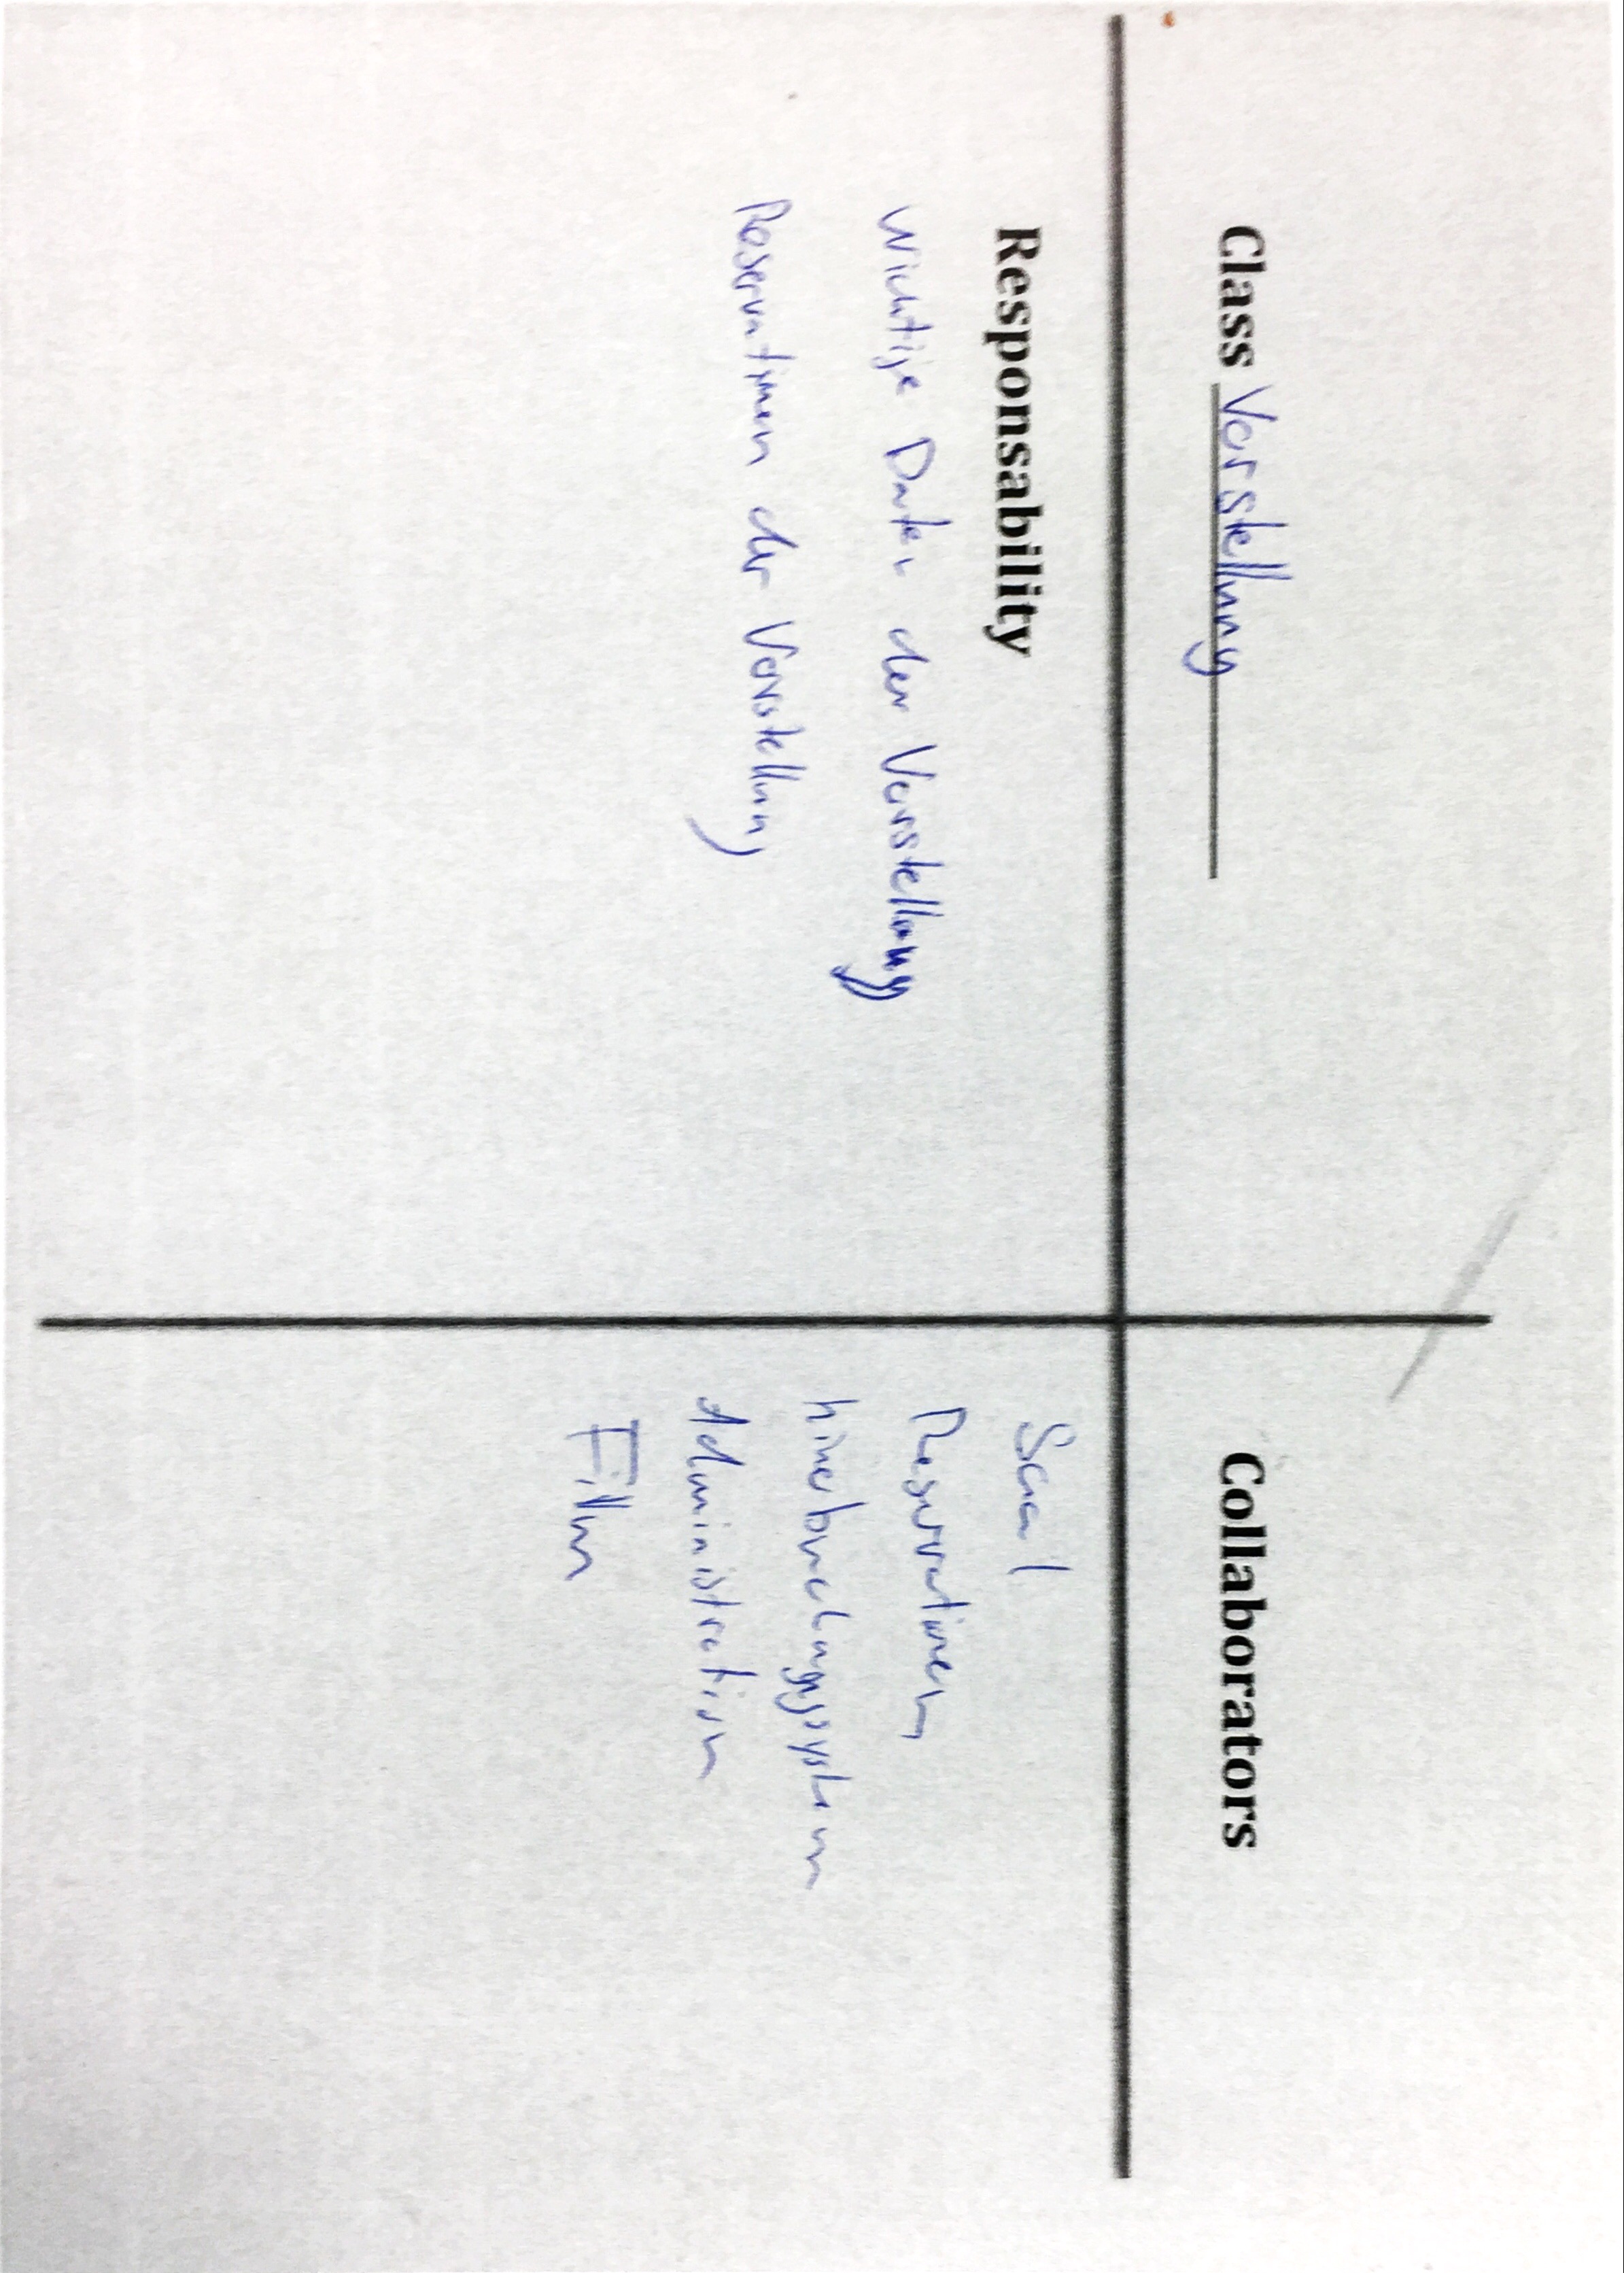 Class Vorstellung
Collaborators
Responsability
Wichtige Daten der Vorstellung
Reservationen der Vorstellung
Saal
Reservationen
Kinobuchungssystem
Administration
Film